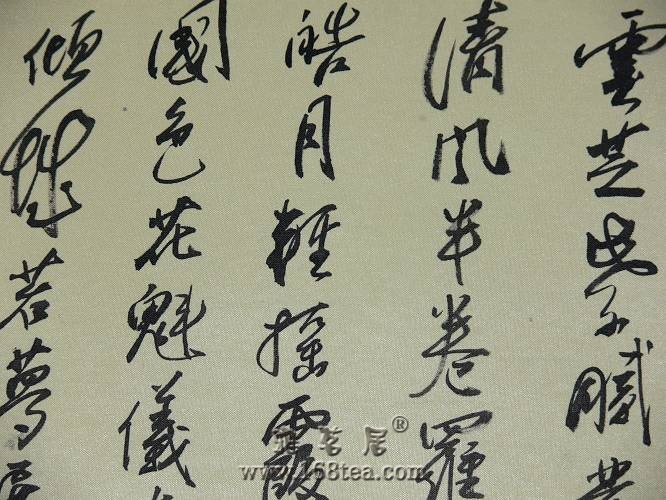 雲芝
清風半卷羅
皓月輕搖霞
國色花魁儀
傾城若夢
茗居®
www.168tea.com